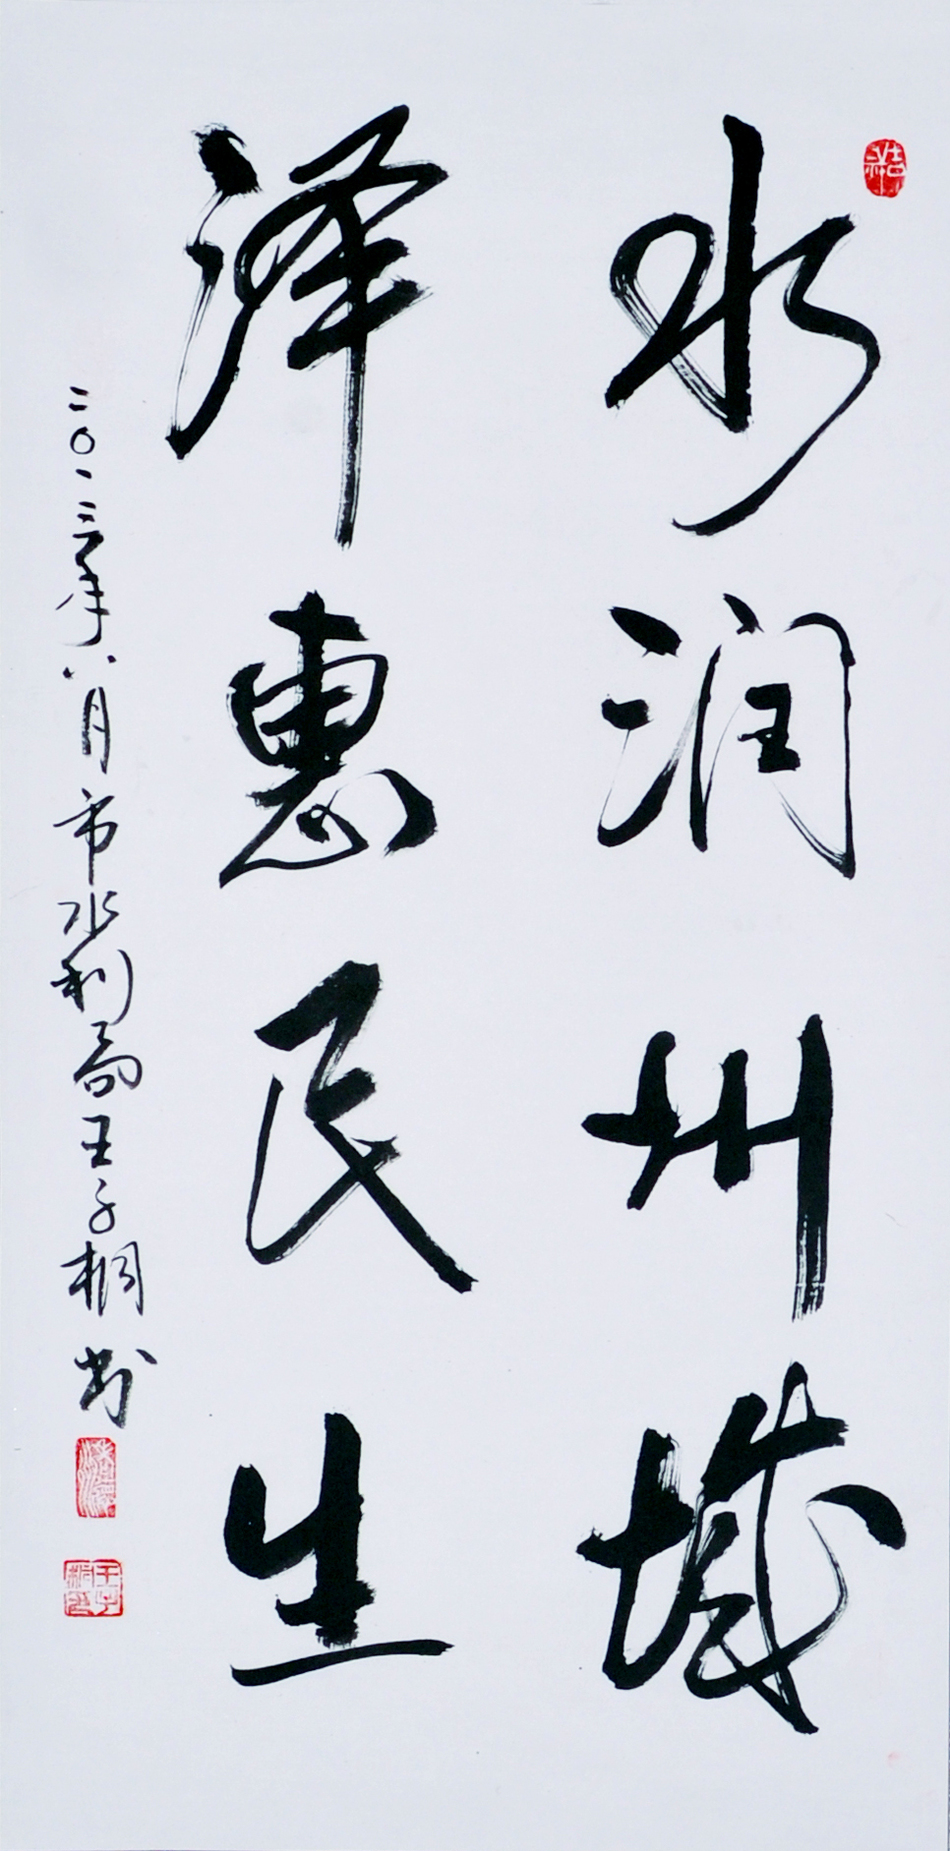 水润州城
泽惠民生
二〇一三年八月市水利局王子桐书